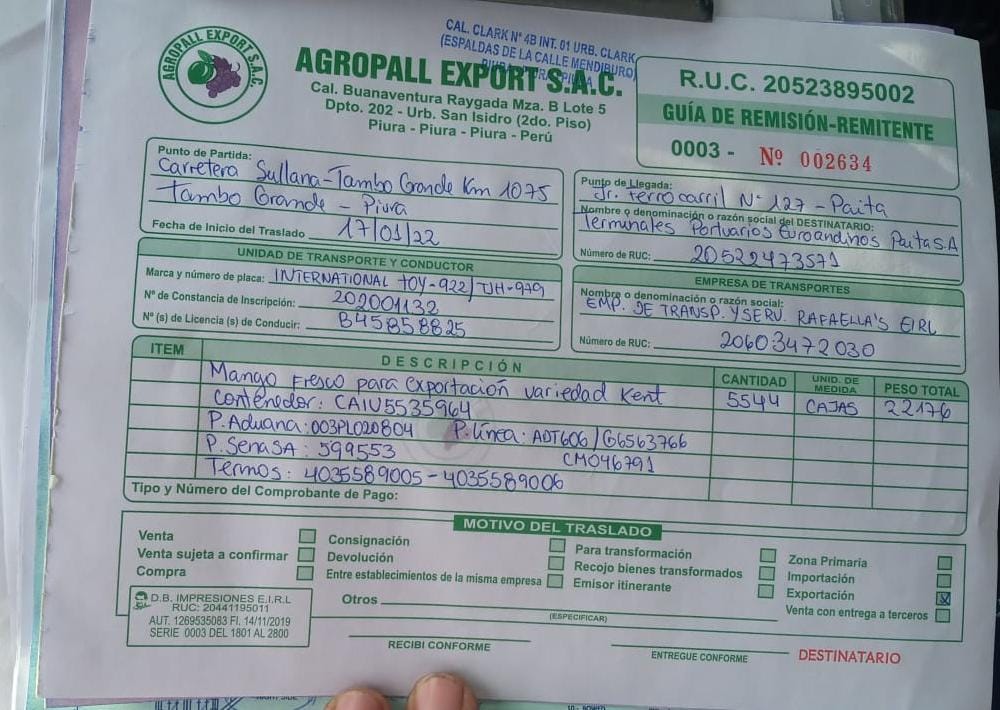 AGROPALL EXPORT S.A.C.
CAL. CLARK Nº 4B INT. 01 URB. CLARK
(ESPALDAS DE LA CALLE MENDIBURO)
AGROPALL EXPORT S.A.C.
Cal. Buenaventura Raygada Mza. B Lote 5
Dpto. 202 - Urb. San Isidro (2do. Piso)
Piura - Piura - Piura - Perú
R.U.C. 20523895002
GUÍA DE REMISIÓN-REMITENTE
0003 - Nº 002634
Punto de Partida:
Carretera Sullana-Tambo Grande Km 1075
Tambo Grande - Piura
Fecha de Inicio del Traslado 17/01/22
Punto de Llegada:
Jr. Ferrocarril Nº 127 - Paita
Nombre o denominación o razón social del DESTINATARIO:
Terminales Portuarios Euroandinos Paita S.A
Número de RUC: 20522473571
UNIDAD DE TRANSPORTE Y CONDUCTOR
Marca y número de placa: INTERNATIONAL
Nº de Constancia de Inscripción: 202001132
Nº (s) de Licencia (s) de Conducir: B45858825
EMPRESA DE TRANSPORTES
Nombre o denominación o razón social:
EMP. DE TRANSP. Y SERV. RAFAELLA'S EIRL
Número de RUC: 20603472030
ITEM DESCRIPCIÓN CANTIDAD UNID. DE MEDIDA PESO TOTAL
Mango Fresco para exportación variedad Kent 5544 CAJAS 22176
Contenedor: CAIU5535964
P. Aduana: 003PL020804 P. Línea: ADT606 / G6563766
P. Senasa: 599553 CM046791
Termos: 4035589005 - 4035589006
Tipo y Número del Comprobante de Pago:
MOTIVO DEL TRASLADO
Venta
Venta sujeta a confirmar
Compra
Consignación
Devolución
Entre establecimientos de la misma empresa
Para transformación
Recojo bienes transformados
Emisor itinerante
Zona Primaria
Importación
Exportación X
Venta con entrega a terceros
Otros
(ESPECIFICAR)
D.B. IMPRESIONES E.I.R.L
RUC: 20441195011
AUT. 1269535083 FI. 14/11/2019
SERIE 0003 DEL 1801 AL 2800
RECIBI CONFORME
ENTREGUE CONFORME
DESTINATARIO